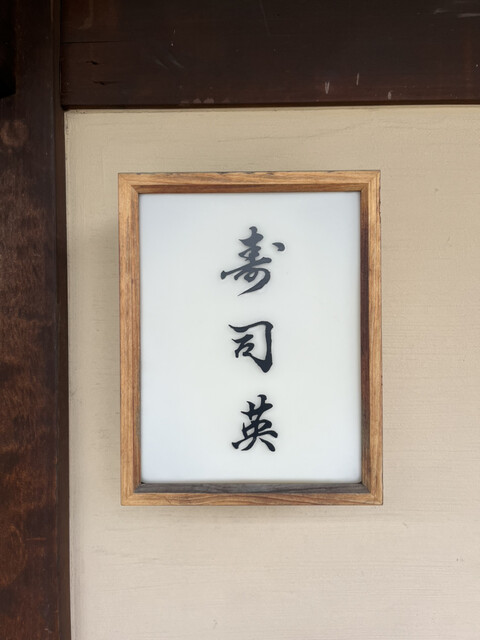 寿司英